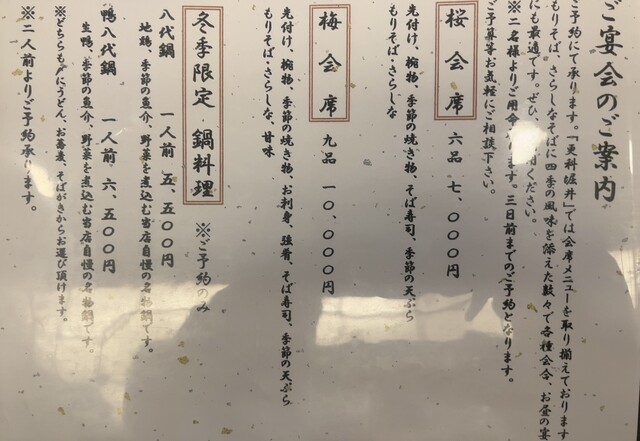 ご宴会のご案内
ご予約にて承ります。『更科堀井』では会席メニューを取り揃えております
もりそば、さらしなそばに四季の風味を添えた数々で各種会合、お昼の宴
にも最適です。ぜひ、
ください。
※二名様よりご用命
ます。三日前までのご予約となります。
ご予算等お気軽にご相談下さい。
桜会席 六品 七、〇〇〇円
先付け、椀物、季節の焼き物、そば寿司、季節の天ぷら
もりそば・さらしな
梅会席 九品 一〇、〇〇〇円
先付け、椀物、季節の焼き物、お刺身、強肴、そば寿司、季節の天ぷら
もりそば・さらしな、甘味
冬季限定 鍋料理 ※ご予約のみ
八代鍋 一人前 五、五〇〇円
地鶏、季節の魚介、野菜を煮込む当店自慢の名物鍋です。
鴨八代鍋 一人前 六、五〇〇円
生鴨、季節の魚介、野菜を煮込む当店自慢の名物鍋です。
※どちらも〆にうどん、お蕎麦、そばがきからお選び頂けます。
※二人前よりご予約承ります。